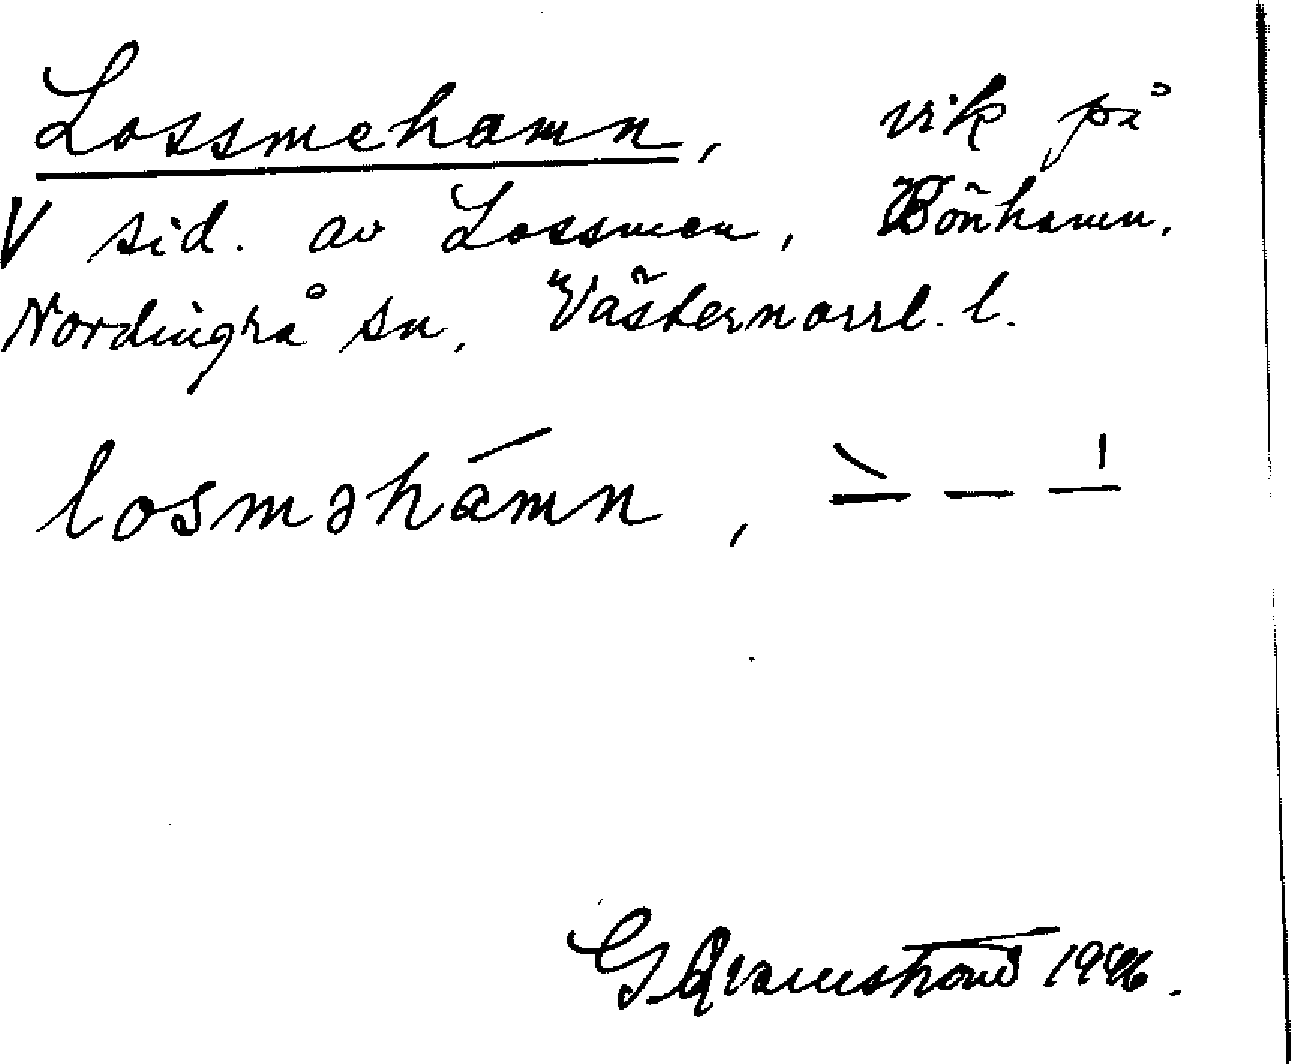 Lossmehamn, vik på
V sid. av Lossmen, Bönhamn,
Nordingrå sn, Västernorrl. l.
losməhámn,
G. Qvarnström 1946.